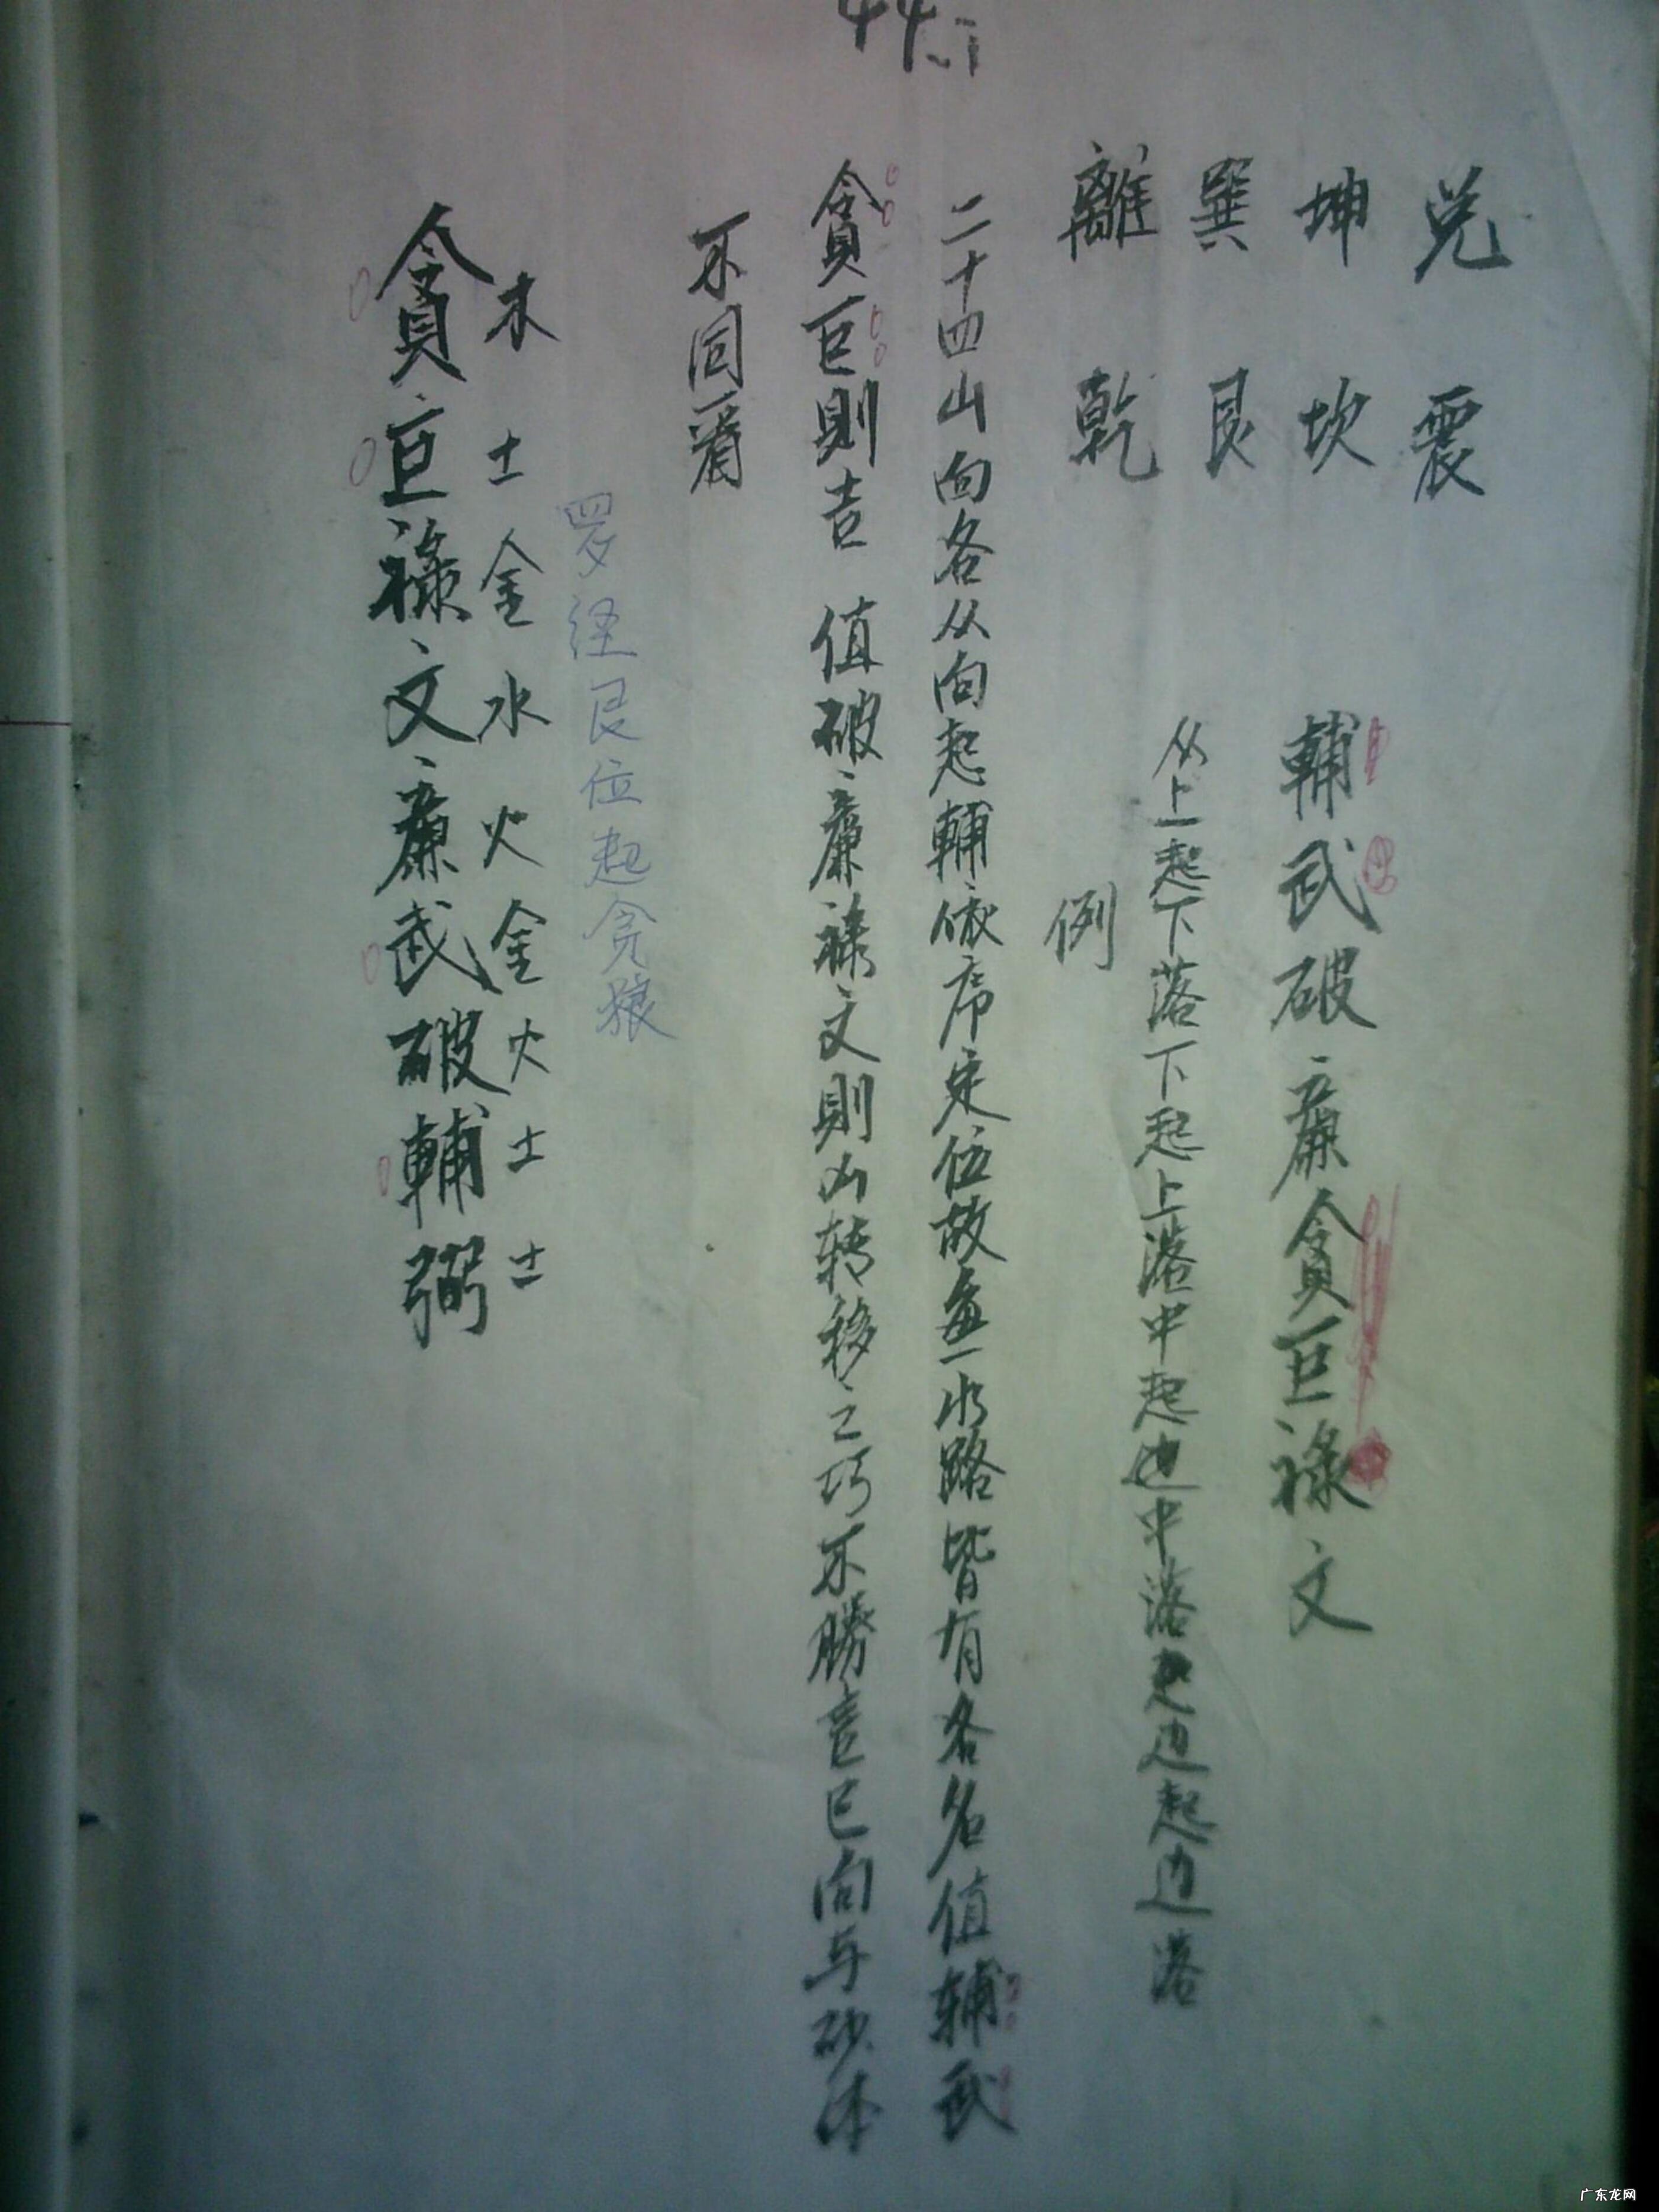 兑 震
坤 坎
輔武破廉貪巨祿文
巽 艮
从上起下落下起上落中起中落边起边落
離 乾
例
二十四山向各从向起輔依序定位故每一水路皆有各名值辅武
貪巨則吉 值破廉祿文則凶转移之巧不勝言已向与砂体
不同着
罗经艮位起贪狼
木土金水火金火土土
貪巨祿文廉武破輔弼
44
广东龙网